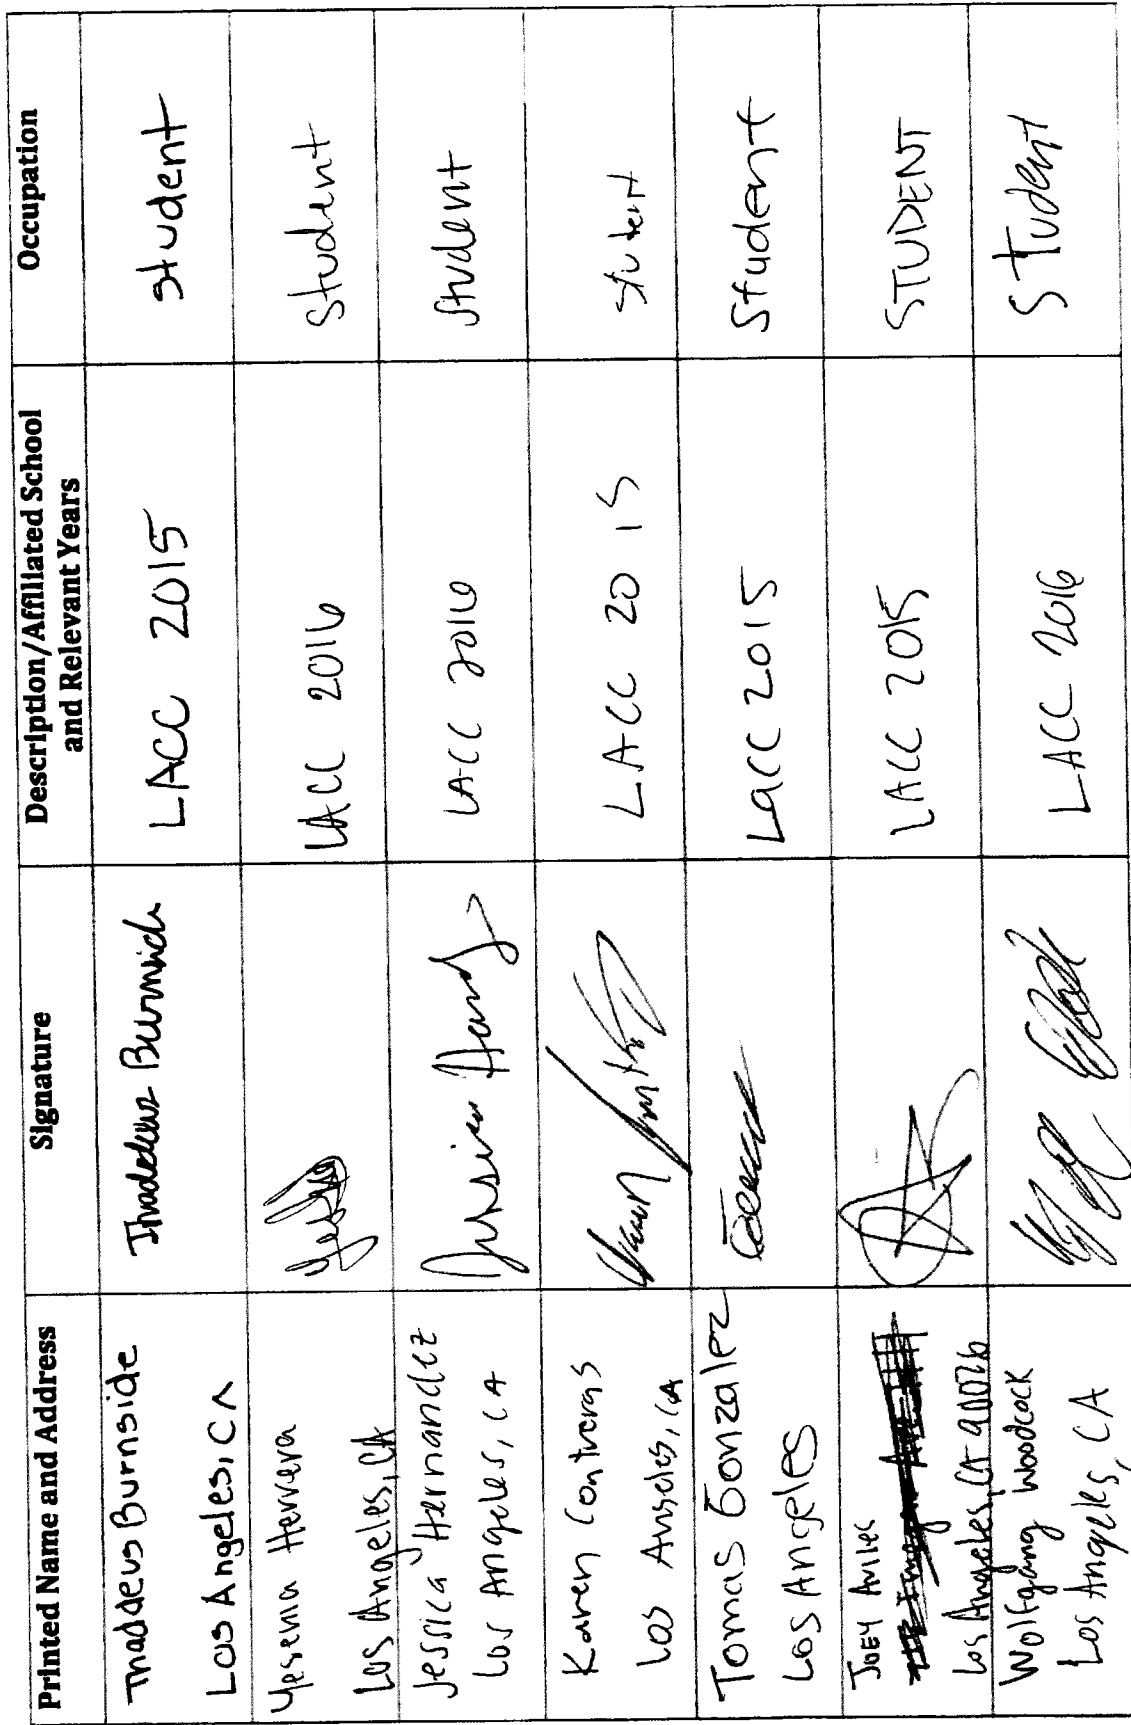 Printed Name and Address
Signature
Description/Affiliated School
and Relevant Years
Occupation
Thaddeus Burnside
Los Angeles, CA
Thaddeus Burnside
LACC 2015
student
Yesenia Herrera
Los Angeles, CA
LACC 2016
Student
Jessica Hernandez
Los Angeles, CA
LACC 2016
Student
Karen Contreras
Los Angeles, CA
LACC 2015
Student
Tomas Gonzalez
Los Angeles
LaCC 2015
Student
JOEY Aviles
Los Angeles, CA 90026
LACC 2015
STUDENT
Wolfgang Woodcock
Los Angeles, CA
LACC 2016
Student